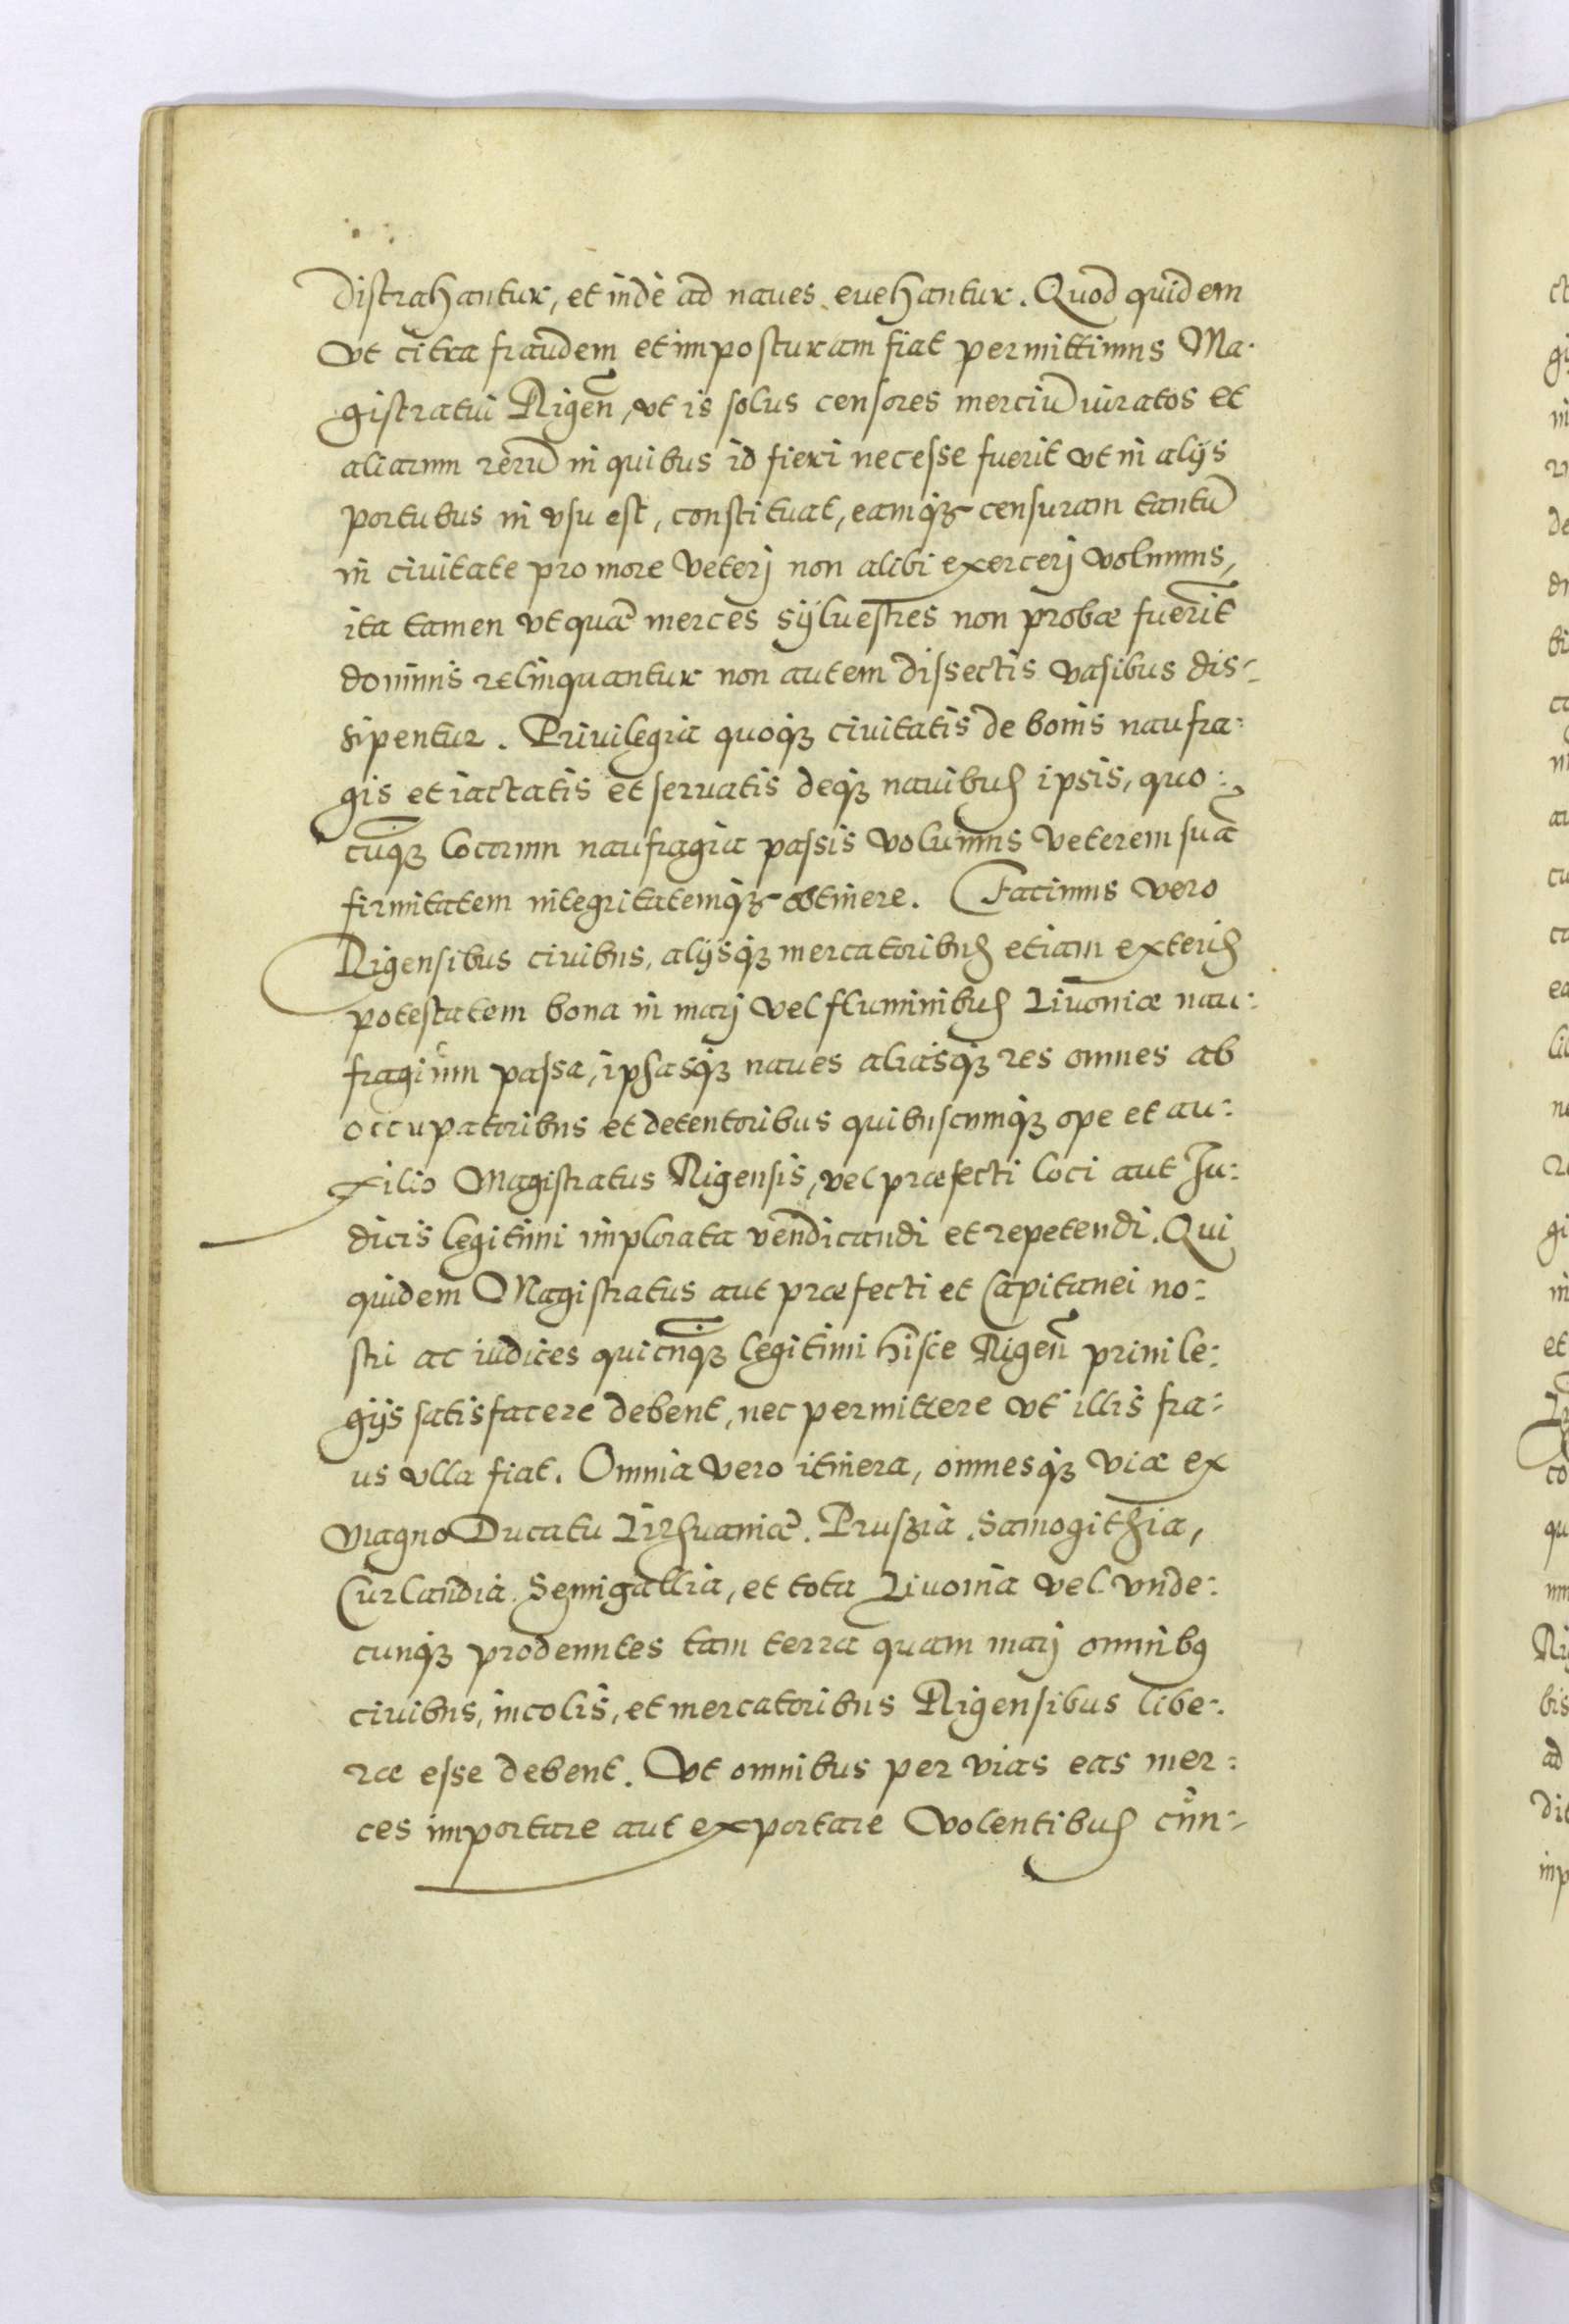 distrahantur, et indè ad naues euehantur. Quod quidem
Vt citra fraudem et imposturam fiat permittimus Ma-
gistratui Rigen̄, vt is solus censores merciū iuratos et
aliarum rerū in quibus id fieri necesse fuerit vt in alijs
portubus in vsu est, constituat, eamqȝ censuram tantū
in ciuitate pro more veterj non alibi exercerj volumus,
ita tamen vt quæ merces syluestres non probæ fuerit
dominis relinquantur non autem dissectis vasibus dis-
sipentur. Priuilegia quoqȝ ciuitatis de bonis naufra:
gis et iactatis et seruatis deqȝ nauibus ipsis, quo:
cūqȝ locorum naufragia passis volumus veterem suā
firmitatem integritatemqȝ obtinere. Facimus vero
Rigensibus ciuibus, alijsqȝ mercatoribus etiam exteris
potestatem bona in marj vel fluminibus Liuoniæ nau:
fragium passa, ipsasqȝ naues aliasqȝ res omnes ab
occupatoribus et detentoribus quibuscumqȝ ope et au:
xilio Magistratus Rigensis, vel præfecti loci aut Ju:
dicis legitimi implorata vendicandi et repetendi. Qui
quidem Magistratus aut præfecti et Capitanei no:
stri ac iudices quicūqȝ legitimi hisce Rigen̄ priuile:
gijs satisfacere debent, nec permittere vt illis fra:
us vlla fiat. Omnia vero itinera, omnesqȝ viæ ex
Magno Ducatu Lithuaniæ. Pruszia. Samogithia,
Curlandia. Semigallia, et tota Liuonia vel vnde:
cunqȝ prodeuntes tam terra quam marj omnibꝯ
ciuibus, incolis, et mercatoribus Rigensibus libe:
ræ esse debent. Vt omnibus per vias eas mer:
ces importare aut exportare volentibus cun-